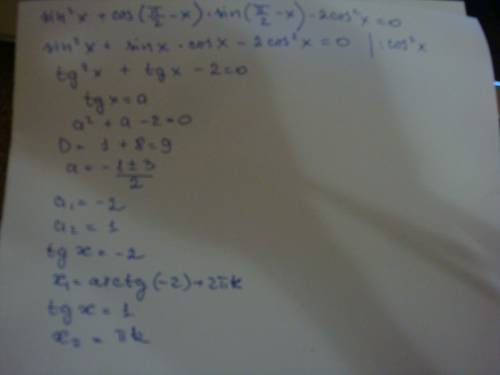 sin²x + cos(π/2 - x) · sin(π/2 - x) - 2cos²x = 0
sin²x + sinx · cosx - 2cos²x = 0 | : cos²x
tg²x + tgx - 2 = 0
tgx = a
a² + a - 2 = 0
D = 1 + 8 = 9
a = -1±3/2
a₁ = -2
a₂ = 1
tgx = -2
x₁ = arctg(-2) + 2πk
tgx = 1
x₂ = πk